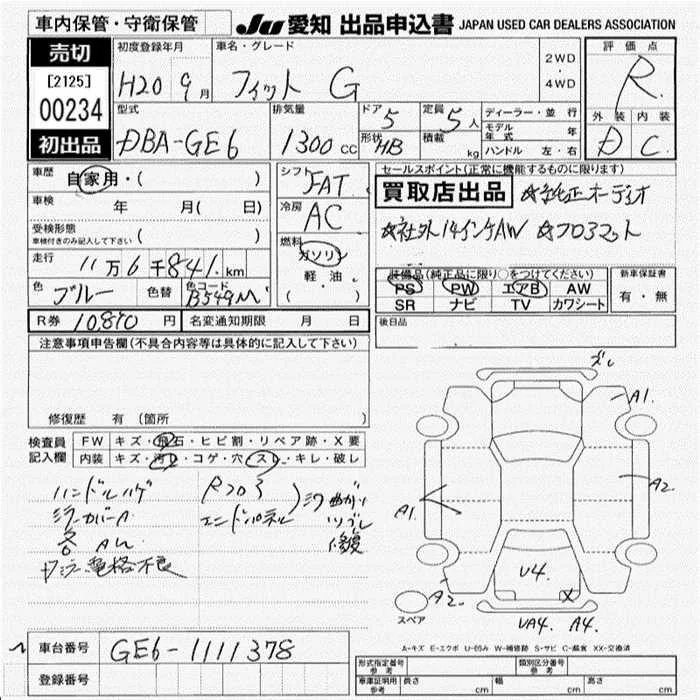 車内保管・守衛保管
JU 愛知 出品申込書 JAPAN USED CAR DEALERS ASSOCIATION
売切
[2125]
00234
初出品
初度登録年月
H20 9月
車名・グレード
フィット G
2WD
・
4WD
評価点
R
外装 内装
D C
型式
DBA-GE6
排気量
1300 CC
ドア 5
定員 5人
形状 HB
積載 kg
ディーラー・並行
モデル年式 年
ハンドル 左・右
車歴 自家用・( )
車検 年 月( 日)
受検形態
車検付きのみ記入して下さい ( )
走行 11万6千841km
色 ブルー 色替 色コード B549M
シフト FAT
冷房 AC
燃料 ガソリン
軽・油
( ・ )
セールスポイント(正常に機能するものに限ります)
買取店出品 ☆純正オーディオ
☆社外14インチAW ☆フロアマット
装備品(純正品に限り○をつけてください)
PS PW エアB AW
SR ナビ TV カワシート
新車保証書
有・無
R券 10,870 円 名変通知期限 月 日
後日品
注意事項申告欄(不具合内容等は具体的に記入して下さい)
修復歴 有 (箇所 )
検査員記入欄
FW キズ・飛石・ヒビ割・リペア跡・X要
内装 キズ・汚レ・コゲ・穴・スレ・キレ・破レ
ハンドルハゲ
ミラーカバーA
各 AU
R フロア
エンドパネル
曲がり
修復
ズレ
A1.
A2.
A1.
A2.
U4.
X
UA4. A4.
スペア
A-キズ E-エクボ U-凹み W-補修跡 S-サビ C-腐食 XX-交換済
車台番号 GE6-1111378
登録番号
形式指定番号 参考
類別区分番号 参考
車庫証明用 参考 長さ cm 幅 cm 高さ cm